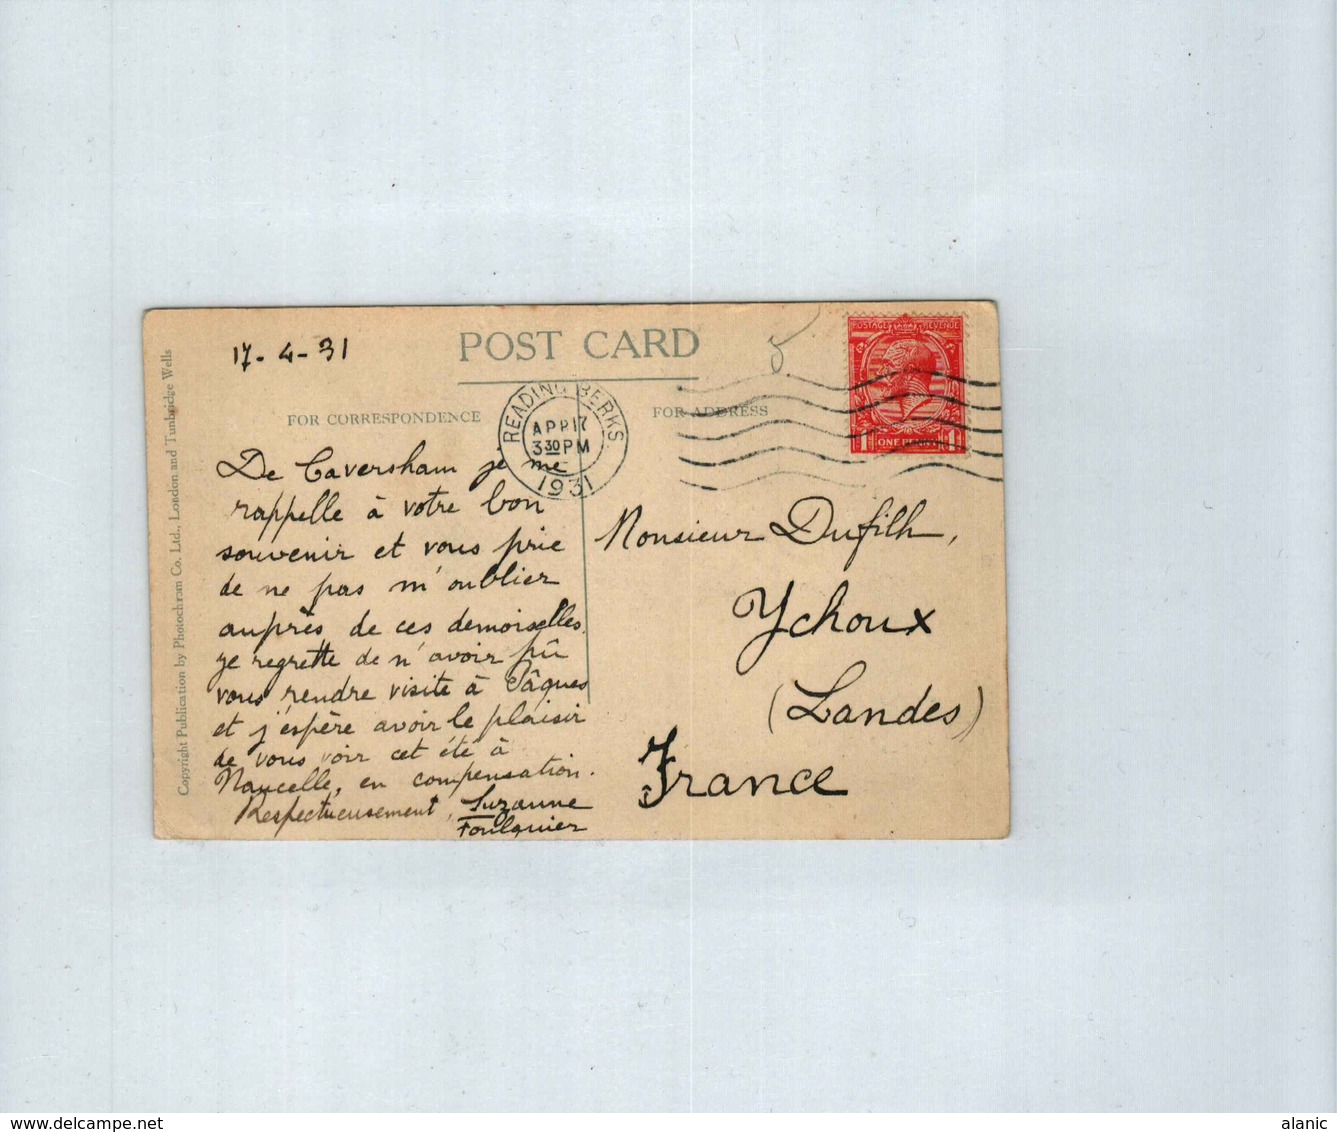 POST CARD
17-4-31
FOR CORRESPONDENCE
FOR ADDRESS
READING BERKS.
APR 17
3 30 PM
1931
POSTAGE REVENUE
1 ONE PENNY 1
De Caversham je me
rappelle à votre bon
souvenir et vous prie
de ne pas m'oublier
auprès de ces demoiselles.
je regrette de n'avoir pû
vous rendre visite à Pâques
et j'espère avoir le plaisir
de vous voir cet été à
Naucelle, en compensation.
Respectueusement, Suzanne
Foulquier
Monsieur Dufilh,
Ychoux
(Landes)
France
Copyright Publication by Photochrom Co. Ltd., London and Tunbridge Wells
delcampe.net
alanic